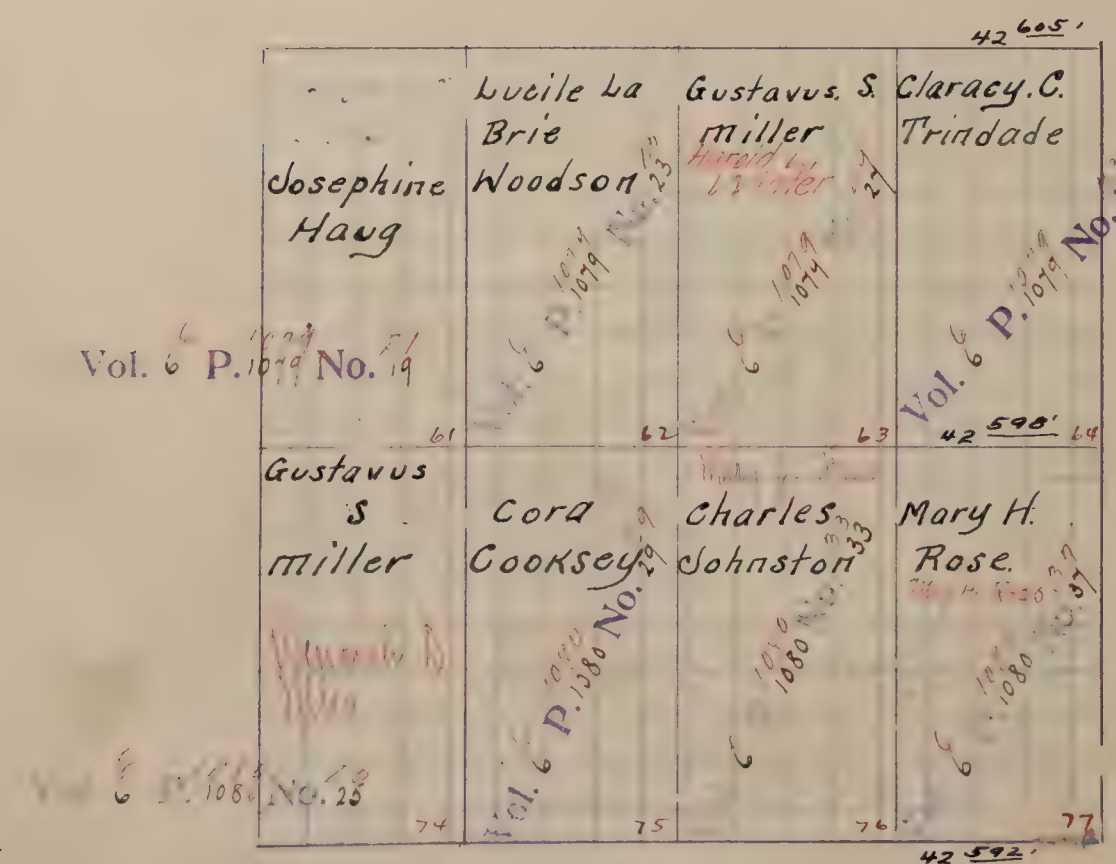 42 605'
Josephine
Haug
Vol. 6 P. 1079 No. 19
61
Lucile La
Brie
Woodson
Vol. 6 P. 1079 No. 23
62
Gustavus. S.
Miller
6 1079 27
63
Claracy. C.
Trindade
Vol. 6 P. 1079 No.
42 598' 64
Gustavus
S.
Miller
Vol. 6 P. 1080 No. 25
74
Cora
Cooksey
Vol. 6 P. 1080 No. 29
75
Charles
Johnston
6 P. 1080 No. 33
76
Mary H.
Rose.
6 P. 1080 No. 37
77
42 592'